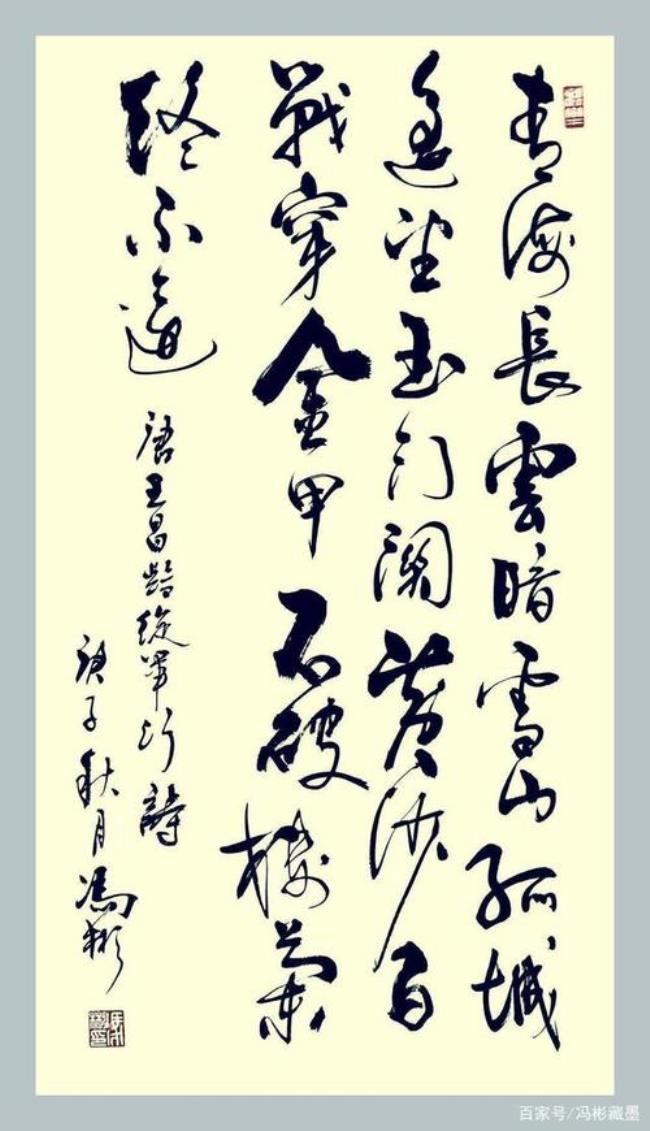 青海長雲暗雪山孤城
遥望玉门關黄沙百
戰穿金甲不破楼蘭
终不還
唐王昌齡從軍行詩
庚子秋月馮彬
百家号/冯彬藏墨